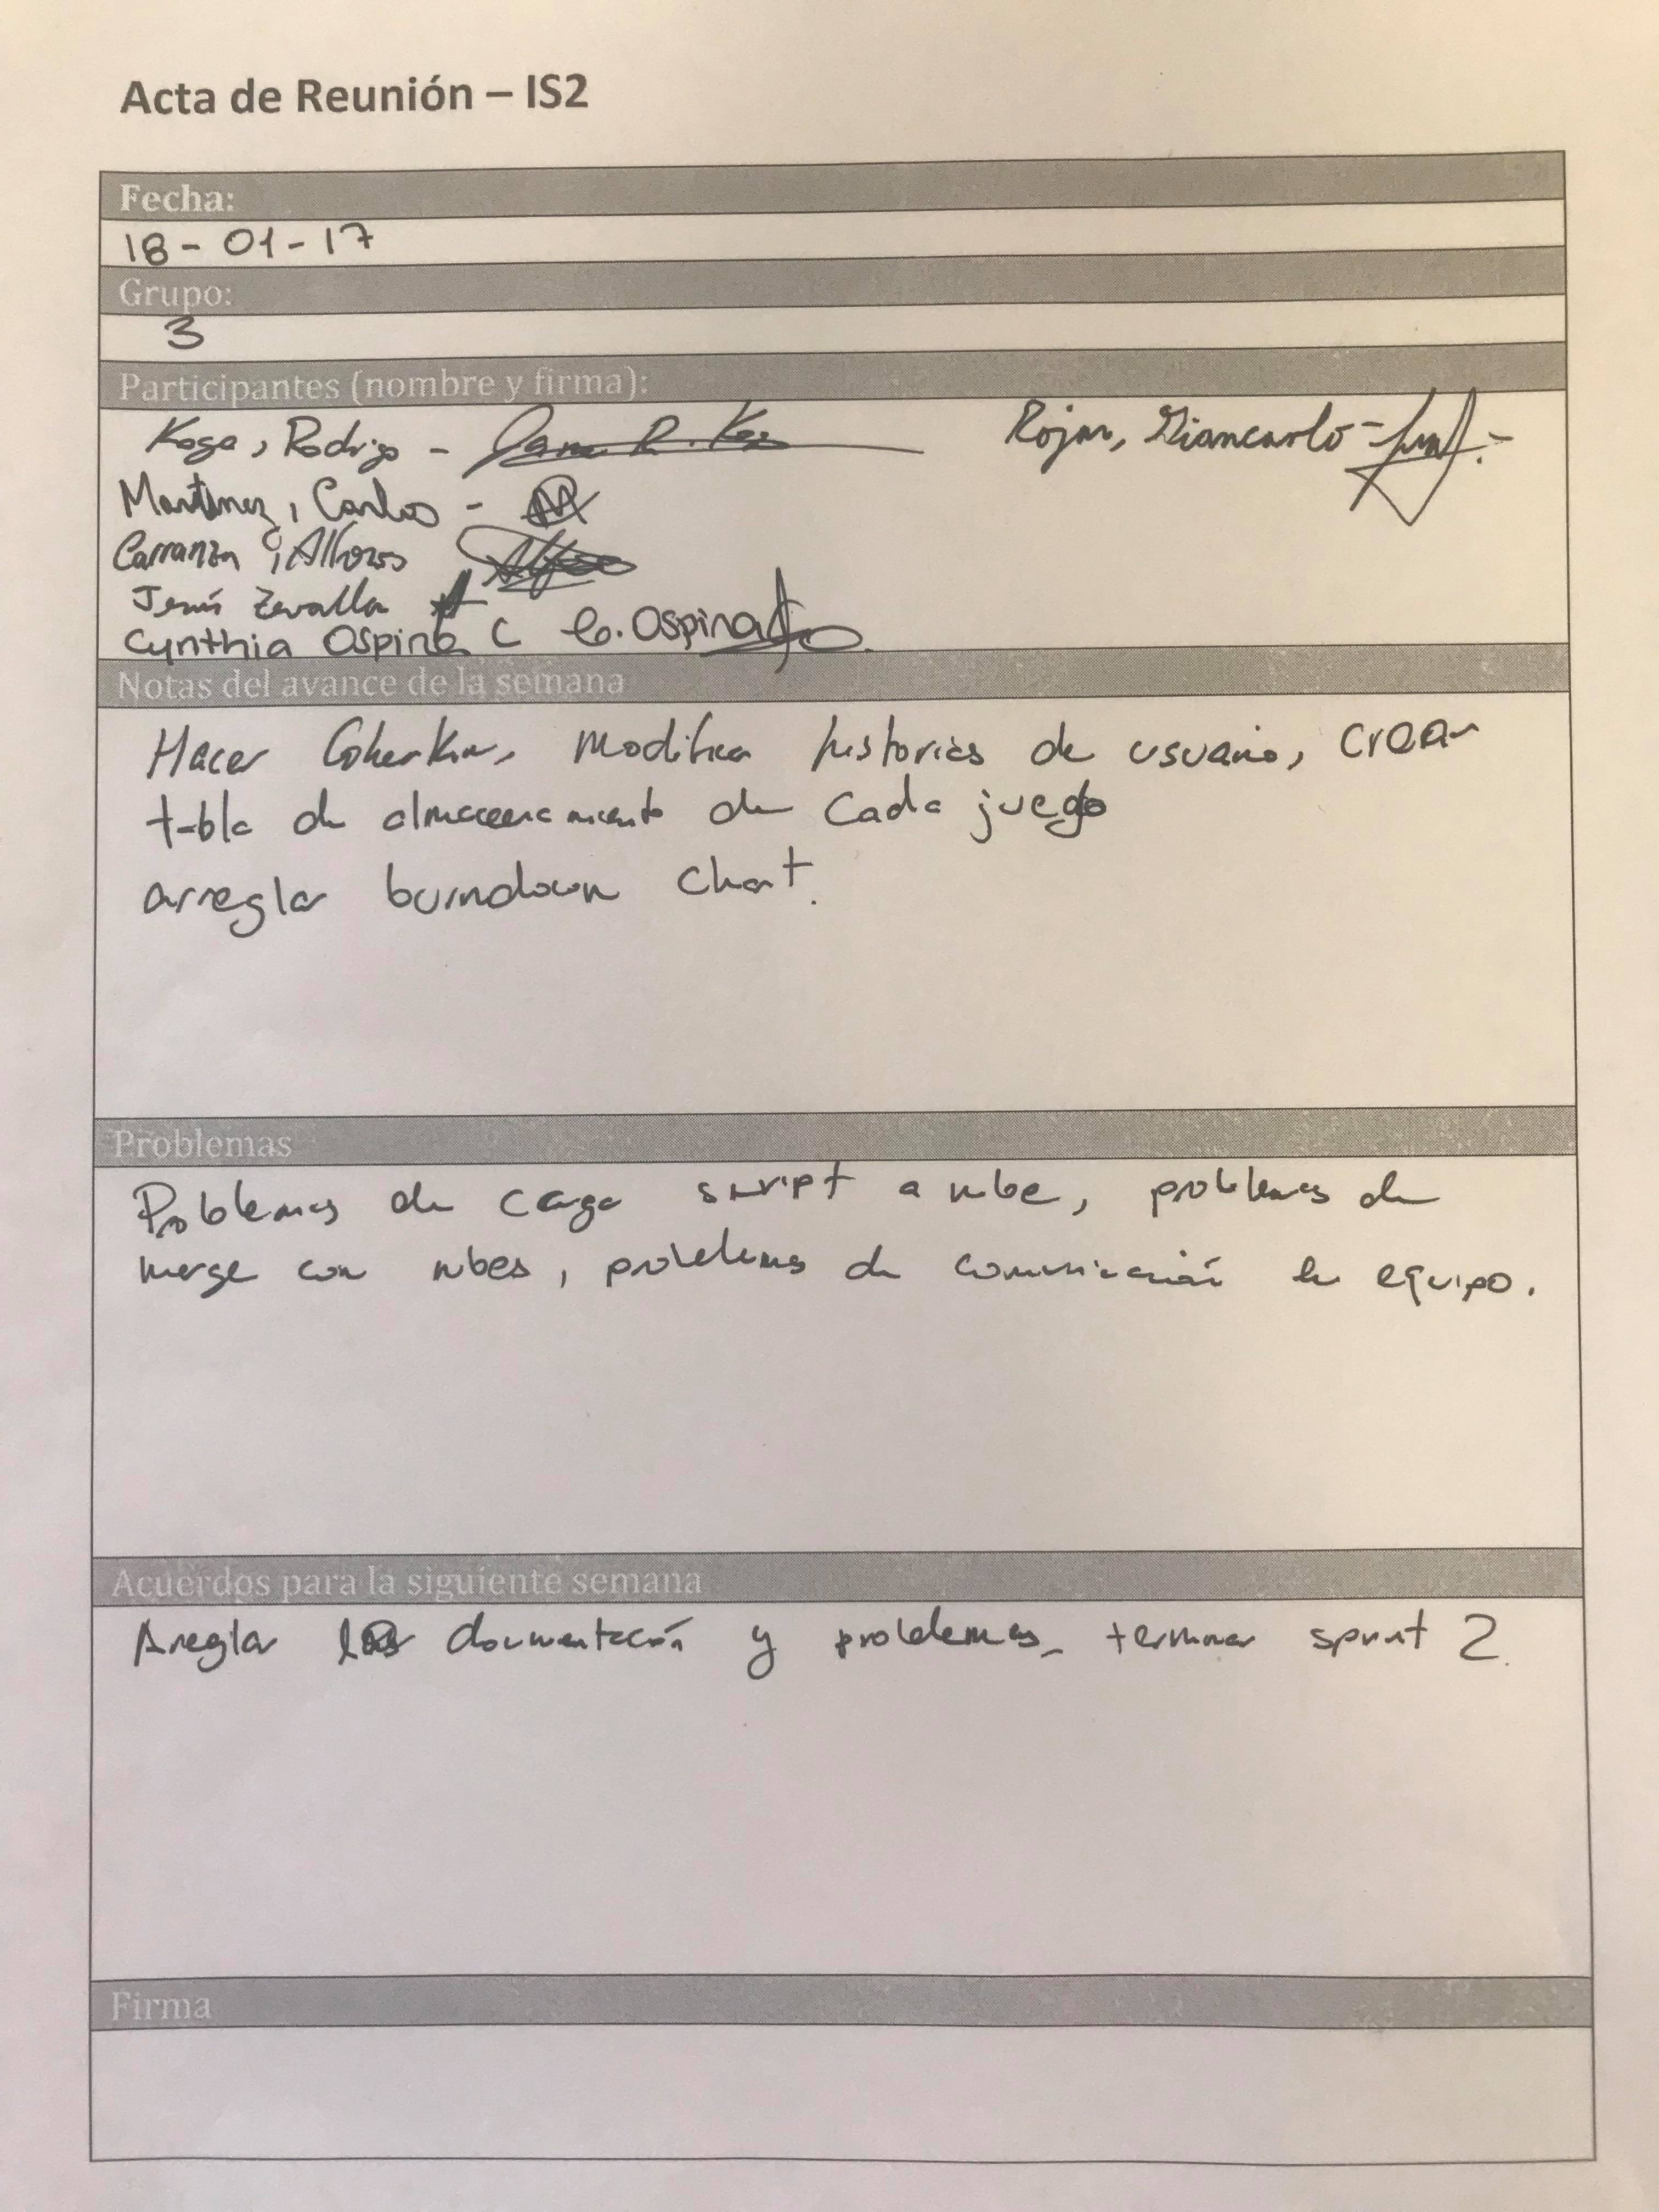 Acta de Reunión – IS2
Fecha:
18-01-17
Grupo:
3
Participantes (nombre y firma):
Koga, Rodrigo -
Rojas, Giancarlo -
Martinez, Carlos -
Carranza, Alfonso
Jesús Zevalla
Cynthia Ospina C C. Ospina
Notas del avance de la semana
Hacer Gherkin, modificar historias de usuario, crear
tabla de almacenamiento de cada juego
arreglar burndown chart.
Problemas
Problemas de carga script a nube, problemas de
merge con nubes, problemas de comunicación en equipo.
Acuerdos para la siguiente semana
Areglar documentación y problemas terminar sprint 2.
Firma